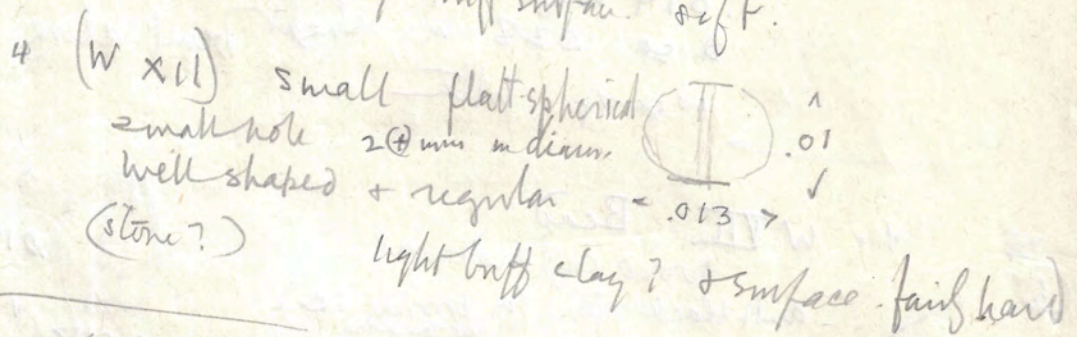 buff surface. soft.
4 (W XII) small flatt-spherical
small hole 2(+) mm in diam. .01
well shaped & regular < .013 >
(stone?)
light buff clay? & surface. fairly hard